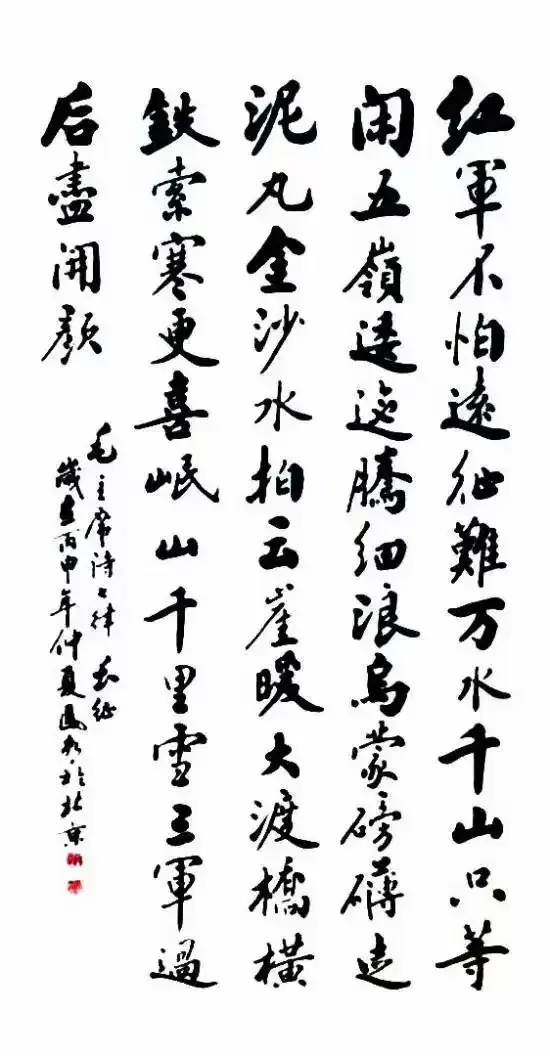 红軍不怕遠征難万水千山只等
闲五嶺逶迤騰细浪烏蒙磅礴走
泥丸金沙水拍云崖暖大渡橋橫
鉄索寒更喜岷山千里雪三軍過
后盡開顏
毛主席诗七律 长征
歲在丙申年仲夏於北京